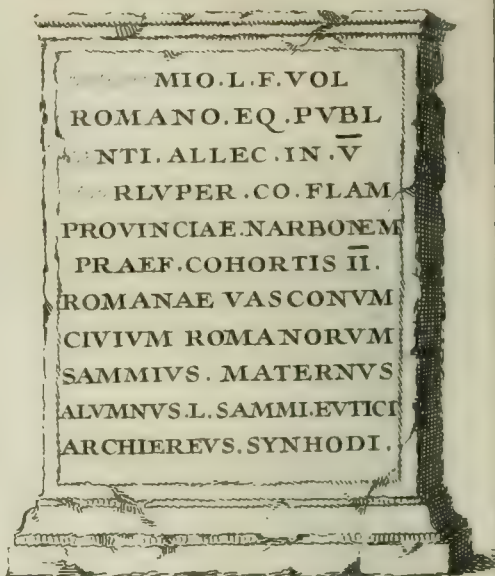 MIO.L.F.VOL
ROMANO.EQ.PVBL
NTI.ALLEC.IN.V̅
RLVPER.CO.FLAM
PROVINCIAE.NARBONEM
PRAEF.COHORTIS I̅I̅.
ROMANAE VASCONVM
CIVIVM ROMANORVM
SAMMIVS. MATERNVS
ALVMNVS.L.SAMMI.EVTICI
ARCHIEREVS.SYNHODI.